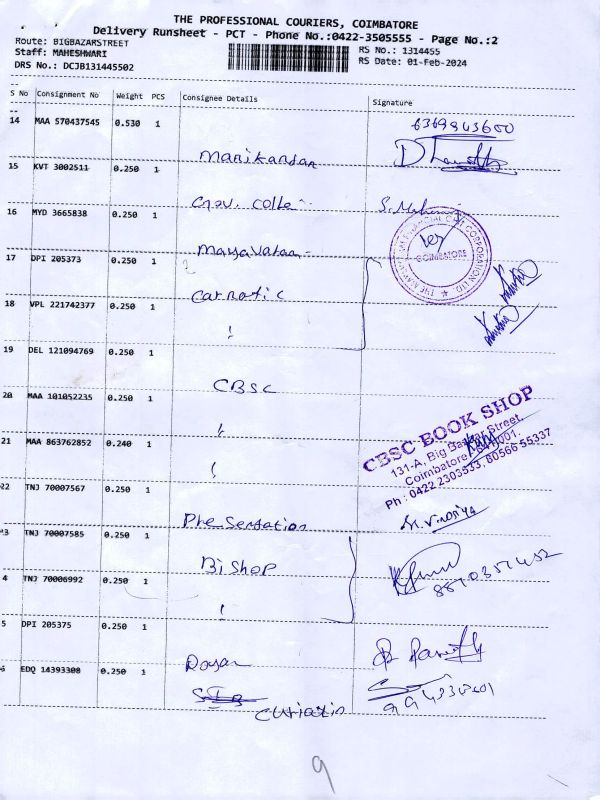 THE PROFESSIONAL COURIERS, COIMBATORE
Delivery Runsheet - PCT - Phone No.:0422-3505555 - Page No.:2
Route: BIGBAZARSTREET
RS No.: 1314455
Staff: MAHESHWARI
RS Date: 01-Feb-2024
DRS No.: DCJB131445502
S No Consignment No Weight PCS Consignee Details Signature
14 MAA 570437545 0.530 1
6369943600
Manikandan
15 KVT 3002511 0.250 1
Gov. colle
16 MYD 3665838 0.250 1
17 DPI 205373 0.250 1
COIMBATORE
carnatic
18 VPL 221742377 0.250 1
19 DEL 121094769 0.250 1
CBSC
20 MAA 101052235 0.250 1
CBSC BOOK SHOP
131-A, Big Bazaar Street,
Coimbatore - 641001.
Ph : 0422 2303533, 80566 55337
21 MAA 863762852 0.240 1
22 TNJ 70007567 0.250 1
Phe Sentation
M. Vinoriya
3 TNJ 70007585 0.250 1
Bishop
4 TNJ 70006992 0.250 1
5 DPI 205375 0.250 1
6 EDQ 14393308 0.250 1
9